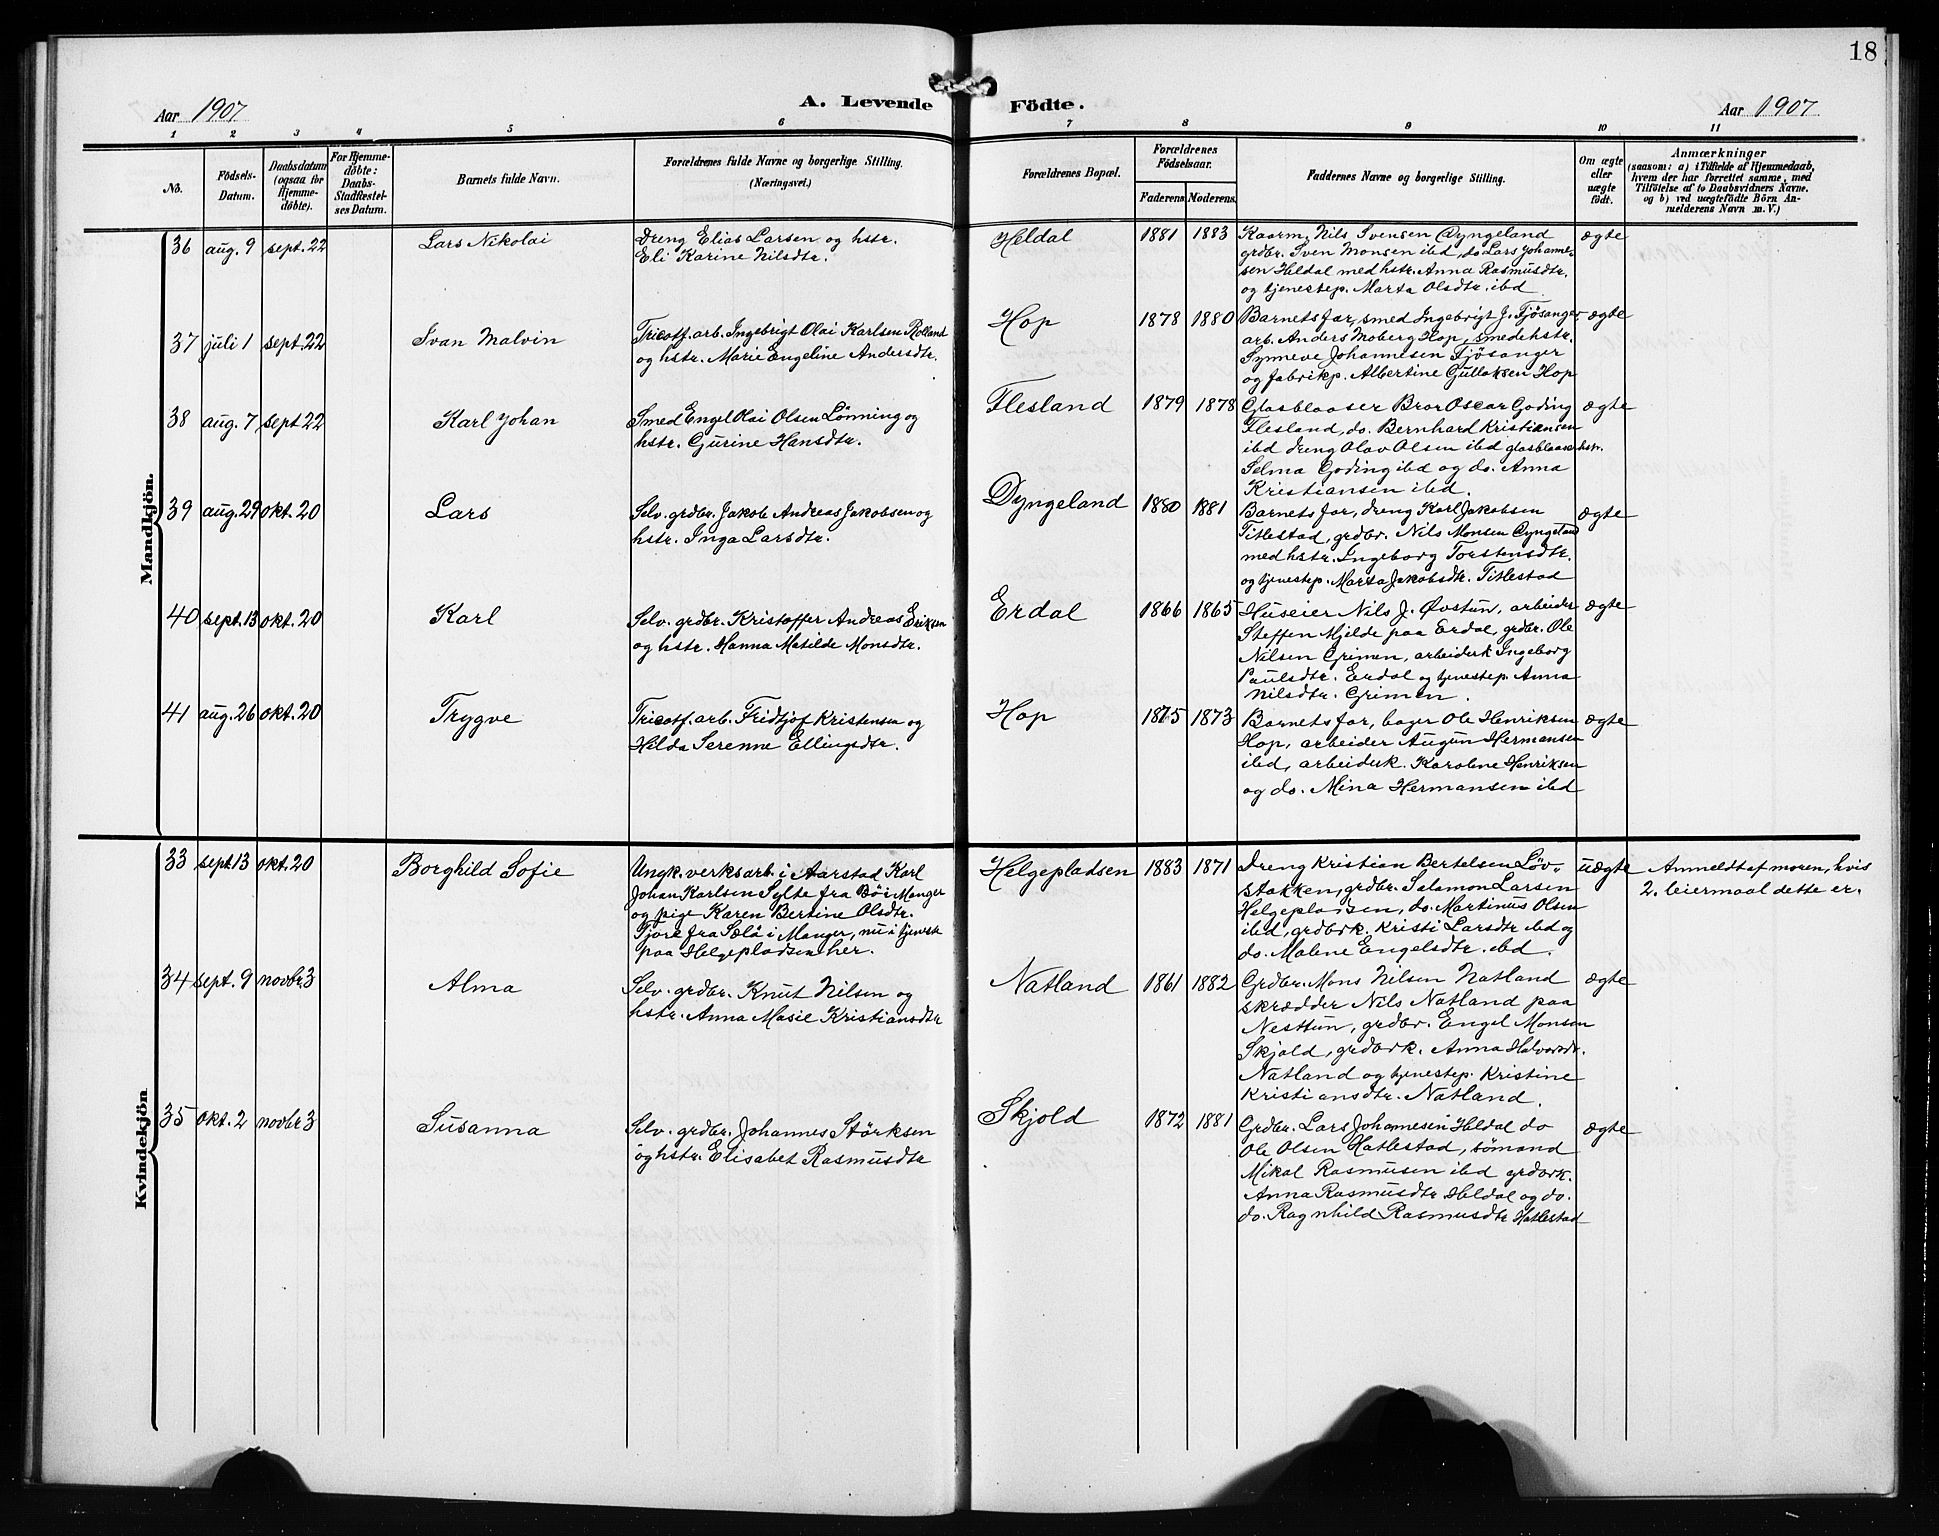 18
Aar 1907
A. Levende
Födte.
Aar 1907
1 2 3 4 5 6 7 8 9 10 11
No.
Födsels-
Datum.
Daabsdatum
(ogsaa for
Hjemme-
döbte).
For Hjemme-
döbte:
Daabs-
Stadfæstel-
ses Datum.
Barnets fulde Navn.
Forældrenes fulde Navne og borgerlige Stilling.
(Næringsvei.)
Forældrenes Bopæl.
Forældrenes
Födselsaar.
Faderens
Moderens.
Faddernes Navne og borgerlige Stilling.
Om ægte
eller
uægte
födt.
Anmærkninger
(saasom: a) i Tilfælde af Hjemmedaab,
hvem der har forrettet samme, med
Tilföielse af to Daabsvidners Navne.
og b) ved uægtefödte Börn An-
melderens Navn m. V.)
Mandkjön.
36 aug. 9 sept. 22
Lars Nikolai
Dreng Elias Larsen og hstr.
Eli Karine Nilsdtr.
Heldal
1881 1883
Kaarm. Nils Svensen Dyngeland
grdbr. Sven Monsen ibd, do Lars Johanne-
sen Heldal med hstr. Anna Rasmusdtr.
og tjenestep. Marta Olsdtr. ibd
ægte
37 juli 1 sept. 22
Ivan Malvin
Tricotf. arb. Ingebrigt Olai Karlsen Rolland
og hstr. Marie Engeline Andersdtr.
Hop
1878 1880
Barnets far, smed Ingebrigt J. Fjösanger
arb. Anders Moberg Hop, smedehstr.
Synneve Johannesen Fjösanger
og fabrikp. Albertine Gullaksen Hop
ægte
38 aug. 7 sept 22
Karl Johan
Smed Engel Olai Olsen Lönning og
hstr. Gurine Hansdtr.
Flesland
1879 1878
Glasblaaser Bror Oscar Goding
Flesland, do. Bernhard Kristiansen
ibd dreng Olav Olsen ibd glasblaaserhstr.
Selma Goding ibd og do. Anna
Kristiansen ibd.
ægte
39 aug. 29 okt. 20
Lars
Selv. grdbr. Jakob Andreas Jakobsen og
hstr. Inga Larsdtr.
Dyngeland
1880 1881
Barnets far, dreng Karl Jakobsen
Titlestad, grdbr. Nils Monsen Dyngeland
med hstr. Ingeborg Torstensdtr.
og tjenestep. Marta Jakobsdtr. Titlestad
ægte
40 sept. 13 okt. 20
Karl
Selv. grdbr. Kristoffer Andreas Eriksen
og hstr. Hanna Matilde Monsdtr.
Erdal
1866 1865
Huseier Nils J. Øvstun, arbeider
Steffen Mjelde paa Erdal, grdbr. Ole
Nilsen Grimen, arbeiderk Ingeborg
Paulsdtr. Erdal og tjenestep. Anna
Nilsdtr. Grimen.
ægte
41 aug. 26 okt. 20
Trygve
Tricotf. arb. Fridtjof Kristensen og
Hilda Serenne Ellingsdtr.
Hop
1875 1873
Barnets far, bager Ole Henriksen
Hop, arbeider Augun Hermansen
ibd, arbeiderk. Karolene Henriksen
og do. Mina Hermansen ibd
ægte
Kvindekjön
33 sept. 13 okt. 20
Borghild Sofie
Ungk. verksarb. i Aarstad Karl
Johan Karlsen Sylte fra Bö i Manger
og pige Karen Bertine Olsdtr.
Tjore fra Sælö i Manger, nu i tjeneste
paa Helgepladsen her.
Helgepladsen
1883 1871
Dreng Kristian Bertelsen Löv-
stakken, grdbr. Salamon Larsen
Helgepladsen, do. Martinus Olsen
ibd, grdbrk. Kristi Larsdtr ibd og
do. Malene Engelsdtr. ibd.
uægte
Anmeldt af moren, hvis
2. leiermaal dette er.
34 sept. 9 novbr. 3
Alma
Selv. grdbr. Knut Nilsen og
hstr. Anna Marie Kristiansdtr
Natland
1861 1882
Grdbr. Mons Nilsen Natland
skrædder Nils Natland paa
Nesttun, grdbr. Engel Monsen
Skjold, grdbrk. Anna Halvorsdtr.
Natland og tjenestep. Kristine
Kristiansdtr. Natland.
ægte
35 okt. 2 novbr. 3
Susanna
Selv. grdbr. Johannes Störksen
og hstr. Elisabet Rasmusdtr
Skjold
1872 1881
Grdbr. Lars Johannesen Heldal do
Ole Olsen Hatlestad, sömand
Mikal Rasmusen ibd grdbrk.
Anna Rasmusdtr Heldal og do.
do. Ragnhild Rasmusdtr Hatlestad
ægte